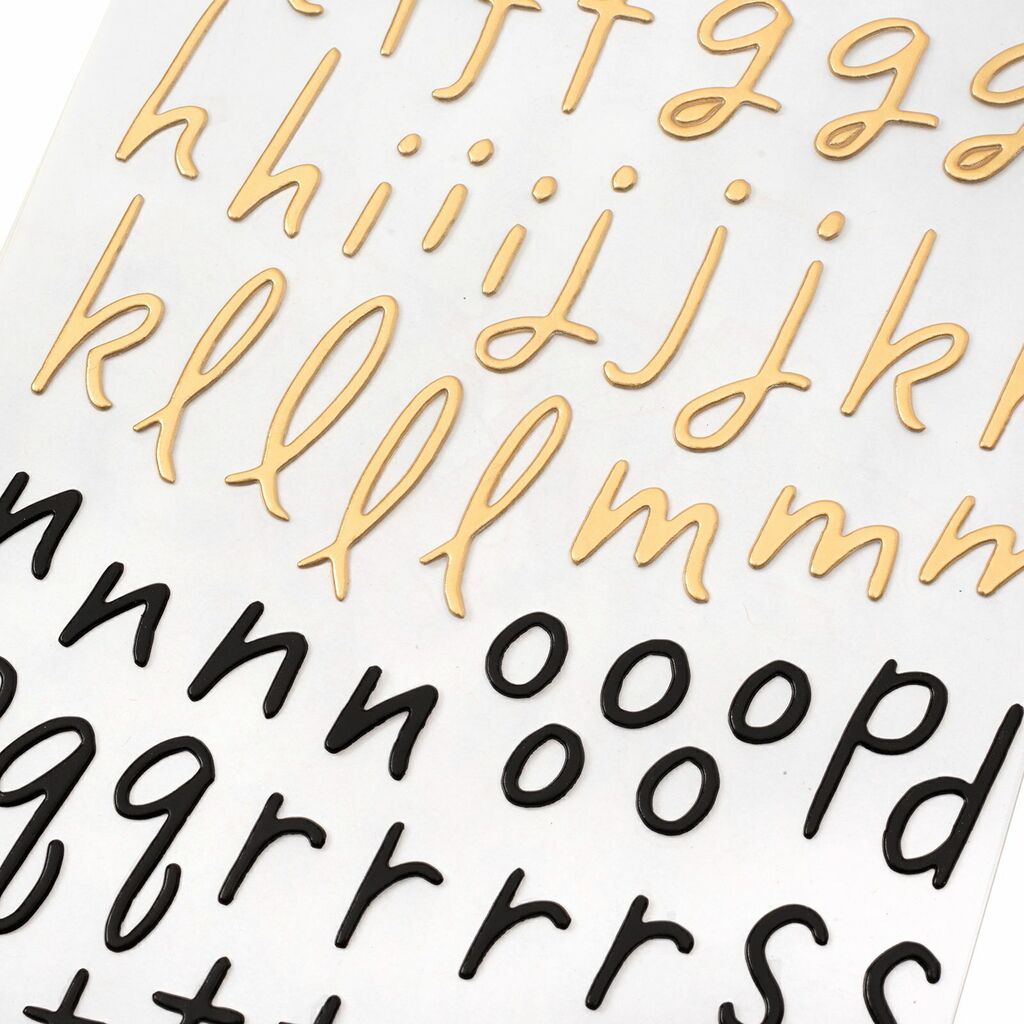 f f g g g
h h i i i j j j k
k l l l l m m m
n n n n o o o o o p p
q q r r r r s s
t t